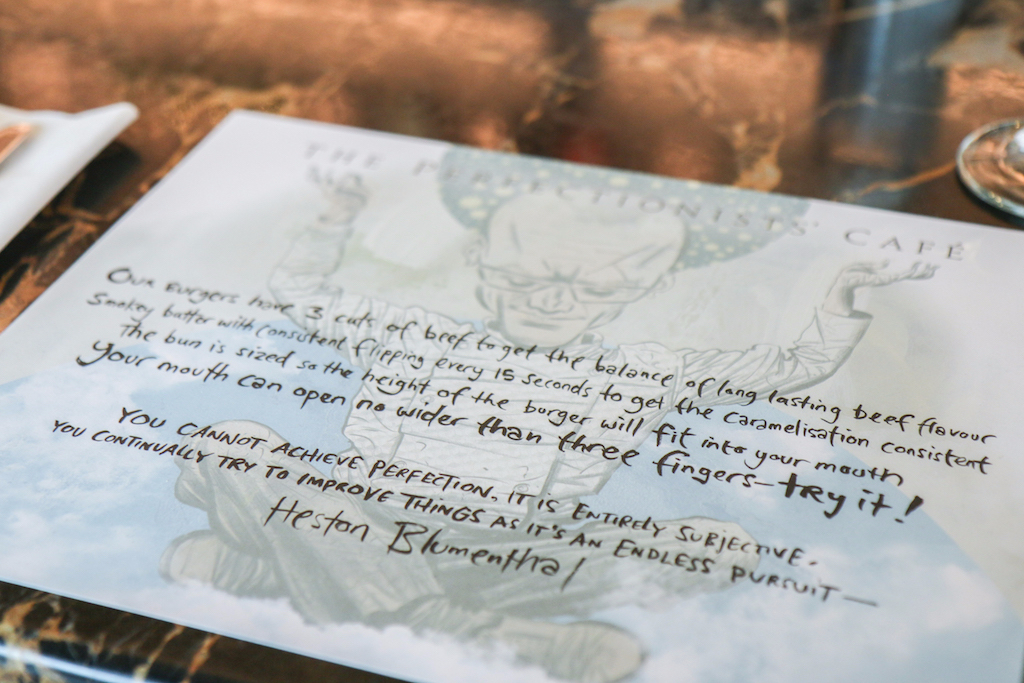 THE PERFECTIONISTS' CAFÉ
Our Burgers have 3 cuts of beef to get the balance of long lasting beef flavour
Smokey butter with consistent flipping every 15 seconds to get the caramelisation consistent
The bun is sized so the height of the burger will fit into your mouth
your mouth can open no wider than three fingers—try it!
YOU CANNOT ACHIEVE PERFECTION. IT IS ENTIRELY SUBJECTIVE.
YOU CONTINUALLY TRY TO IMPROVE THINGS AS IT'S AN ENDLESS PURSUIT—
Heston Blumenthal